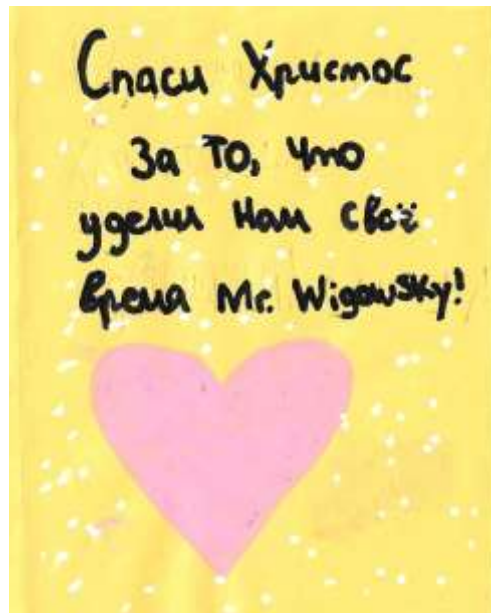 Спаси Христос
За то, что
уделил нам своё
время Mr. Wigowsky!